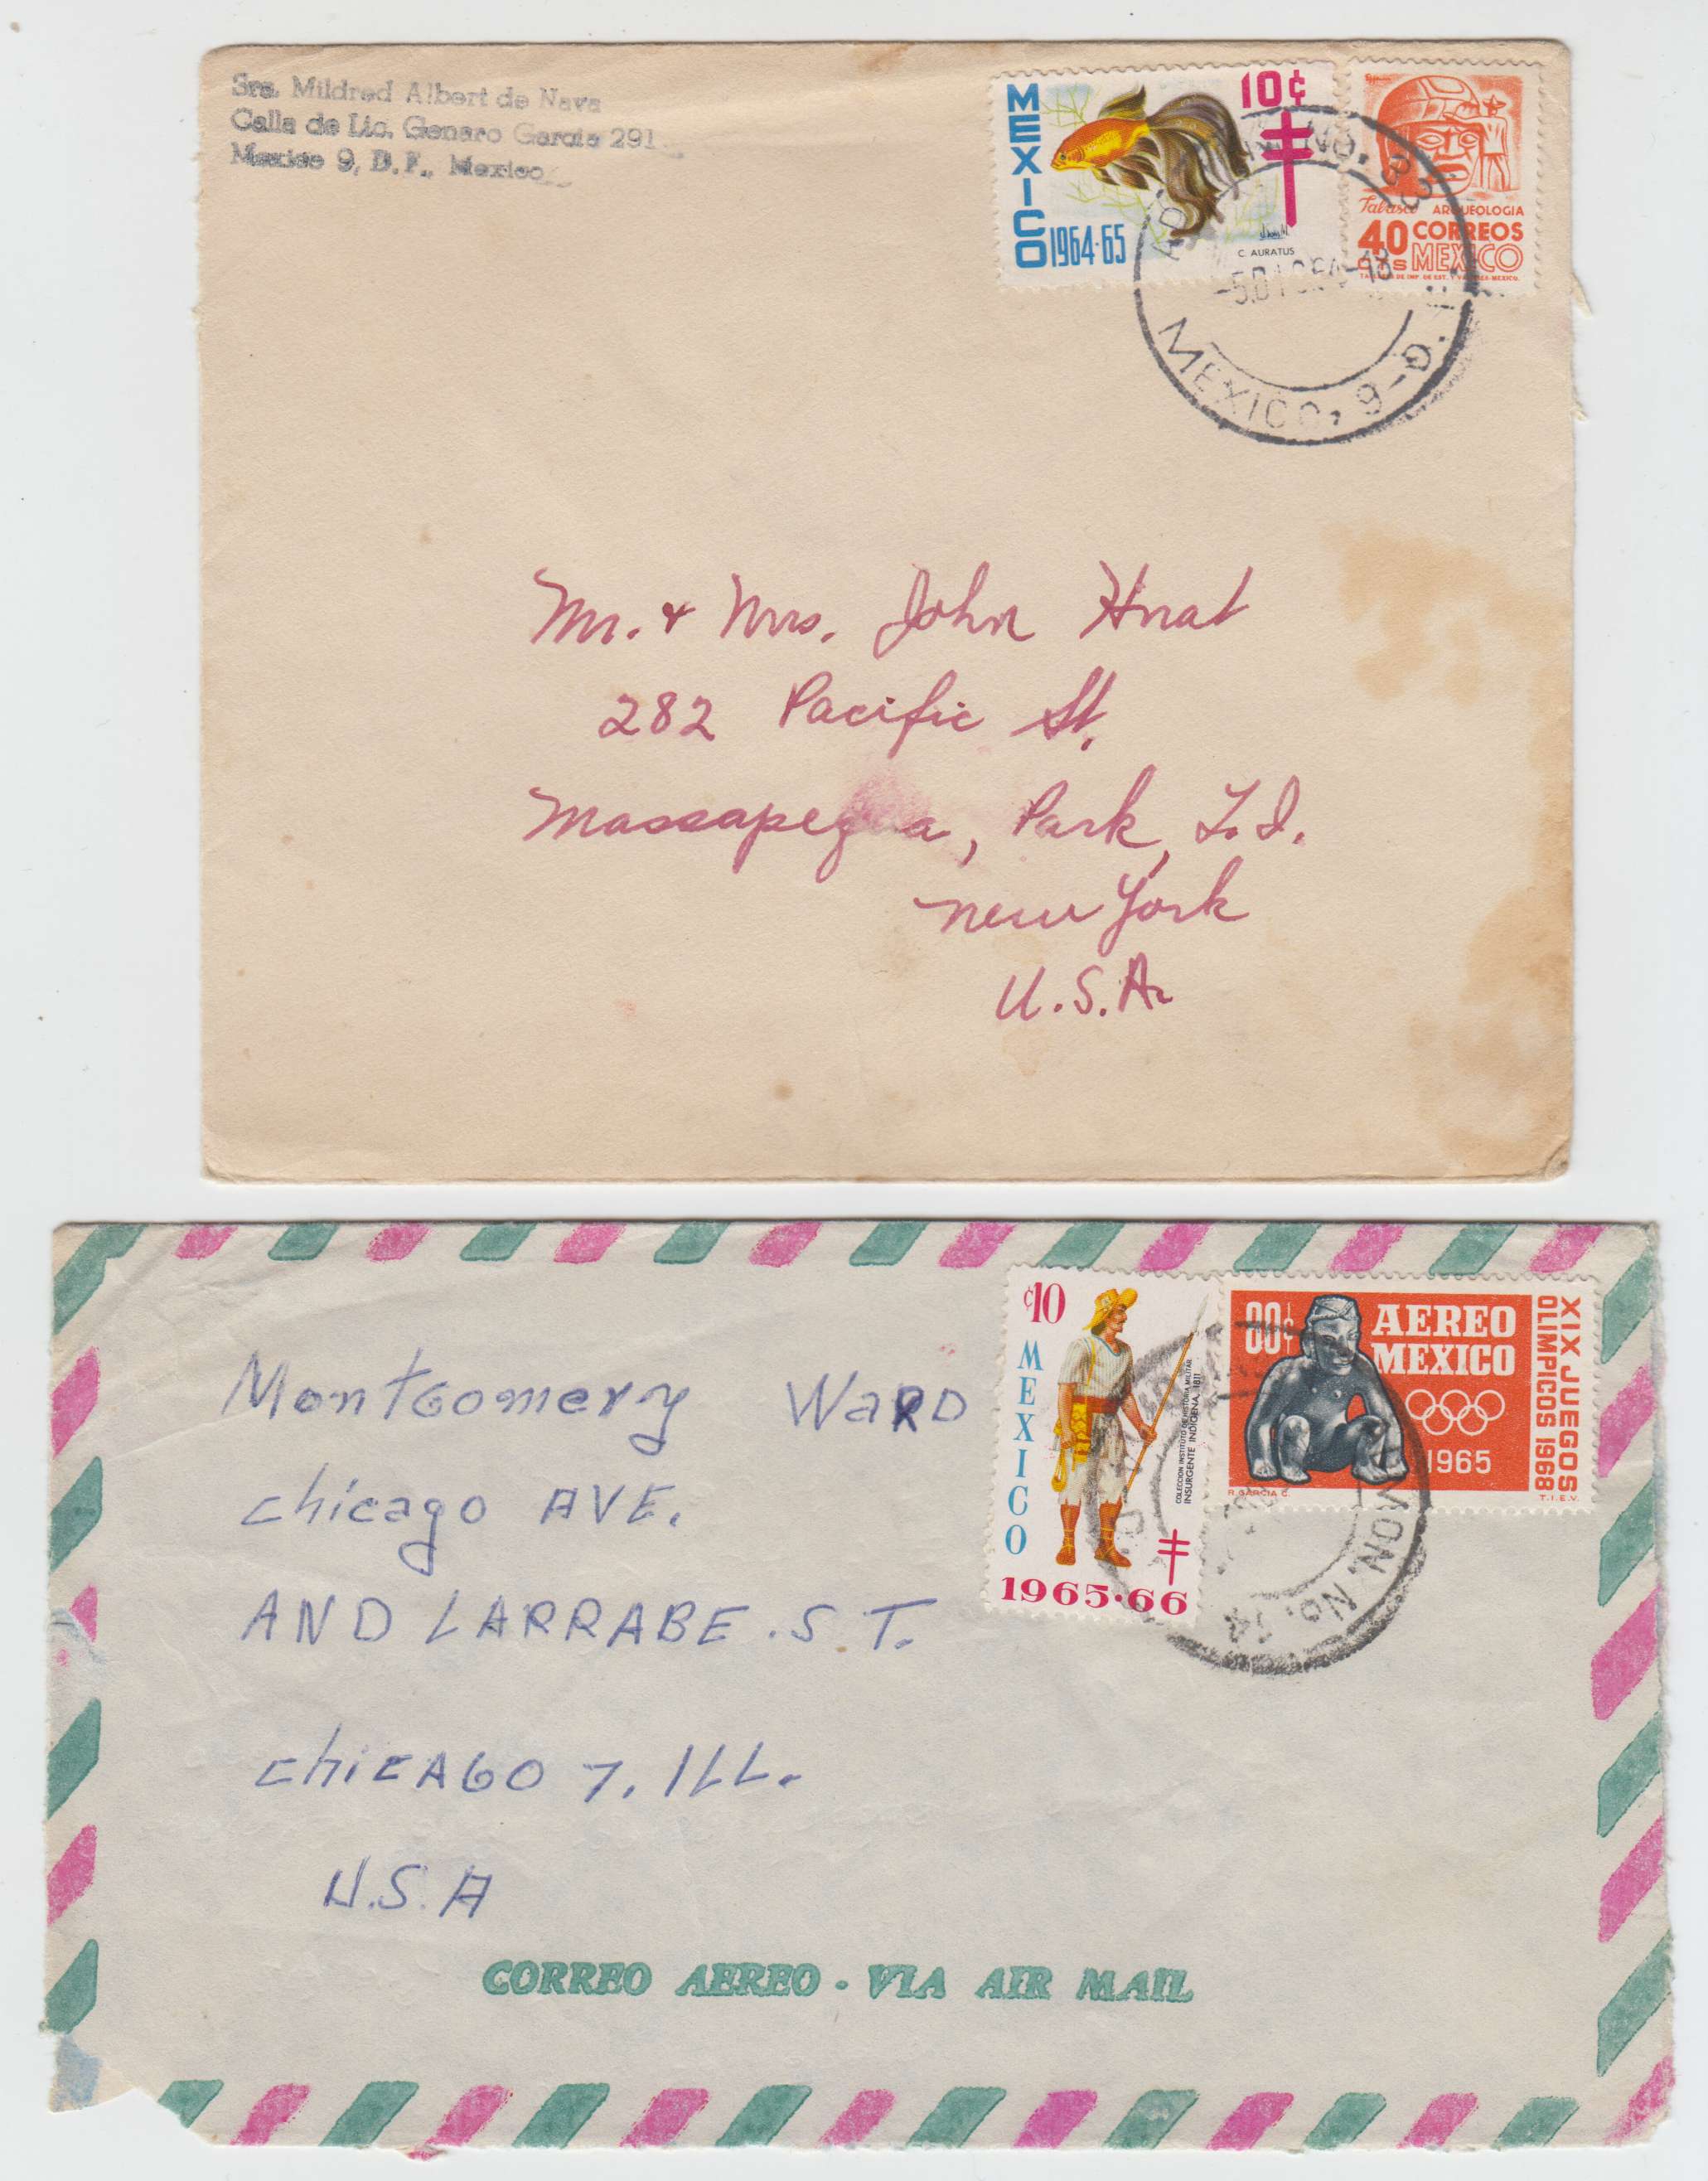 Sra. Mildred Albert de Nava
Calle de Lic. Genaro Garcia 291
Mexico 9, D.F., Mexico
MEXICO
10¢
1964-65
C. AURATUS
Tabasco ARQUEOLOGIA
40 CORREOS
CTS MEXICO
TALLERES DE IMP. DE EST. Y VALORES-MEXICO.
NO. 33
-5.DIC.64-18
MEXICO, 9-D.F.
Mr. & Mrs. John Hnat
282 Pacific St.
Massapequa, Park, L.I.
New York
U.S.A.
¢10
MEXICO
COLECCION INSTITUTO DE HISTORIA MILITAR
INSURGENTE INDIGENA, 1811
1965-66
80¢
AEREO
MEXICO
1965
XIX JUEGOS
OLIMPICOS 1968
R. GARCIA C.
T.I.E.V.
MON. No. 14
Montgomery Ward
Chicago AVE.
AND LARRABE. S.T.
ChicAGO 7. ILL.
U.S.A
CORREO AEREO - VIA AIR MAIL